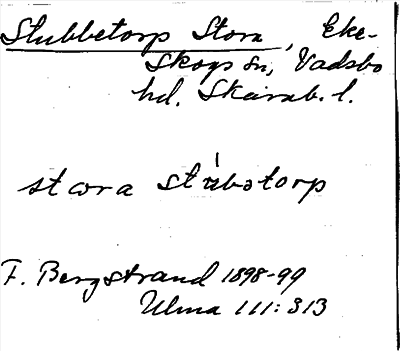 Stubbetorp Stora, Eke-
skogs sn, Vadsbo
hd. Skarab. l.
stora stùbətorp
F. Bergstrand 1898-99
Ulma 111:313